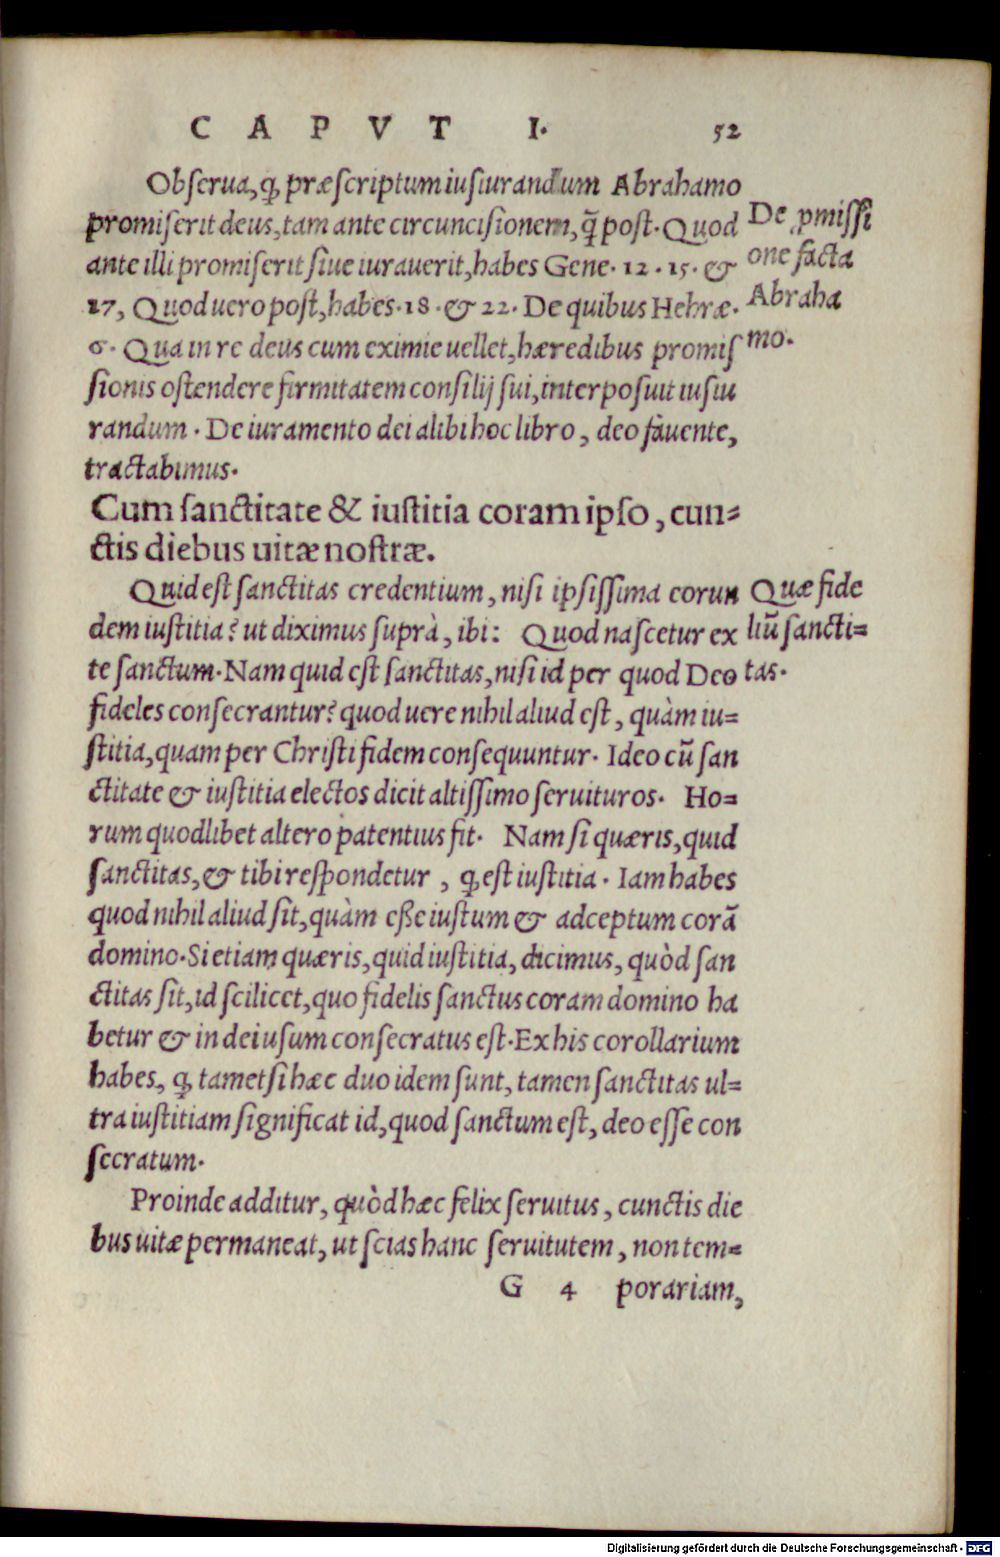 CAPVT I. 52
Obserua, ꝙ præscriptum iusiurandum Abrahamo
promiserit deus, tam ante circuncisionem, q̃ post. Quod
ante illi promiserit siue iurauerit, habes Gene. 12. 15. &
17, Quod uero post, habes. 18. & 22. De quibus Hebræ.
6. Qua in re deus cum eximie uellet, hæredibus promis
sionis ostendere firmitatem consilij sui, interposuit iusiu
randum. De iuramento dei alibi hoc libro, deo fauente,
tractabimus.
De ꝓmissi
one facta
Abraha
mo.
Cum sanctitate & iustitia coram ipso, cun-
ctis diebus uitæ nostræ.
Quid est sanctitas credentium, nisi ipsissima eorun
dem iustitia? ut diximus suprà, ibi: Quod nascetur ex
te sanctum. Nam quid est sanctitas, nisi id per quod Deo
fideles consecrantur? quod uere nihil aliud est, quàm iu-
stitia, quam per Christi fidem consequuntur. Ideo cū san
ctitate & iustitia electos dicit altissimo seruituros. Ho-
rum quodlibet altero patentius fit. Nam si quæris, quid
sanctitas, & tibi respondetur, ꝙ est iustitia. Iam habes
quod nihil aliud sit, quàm esse iustum & adceptum corā
domino. Si etiam quæris, quid iustitia, dicimus, quòd san
ctitas sit, id scilicet, quo fidelis sanctus coram domino ha
betur & in dei usum consecratus est. Ex his corollarium
habes, ꝙ tametsi hæc duo idem sunt, tamen sanctitas ul-
tra iustitiam significat id, quod sanctum est, deo esse con
secratum.
Quæ fide
liū sancti-
tas.
Proinde additur, quòd hæc felix seruitus, cunctis die
bus uitæ permaneat, ut scias hanc seruitutem, non tem-
G 4 porariam,
Digitalisierung gefördert durch die Deutsche Forschungsgemeinschaft - DFG